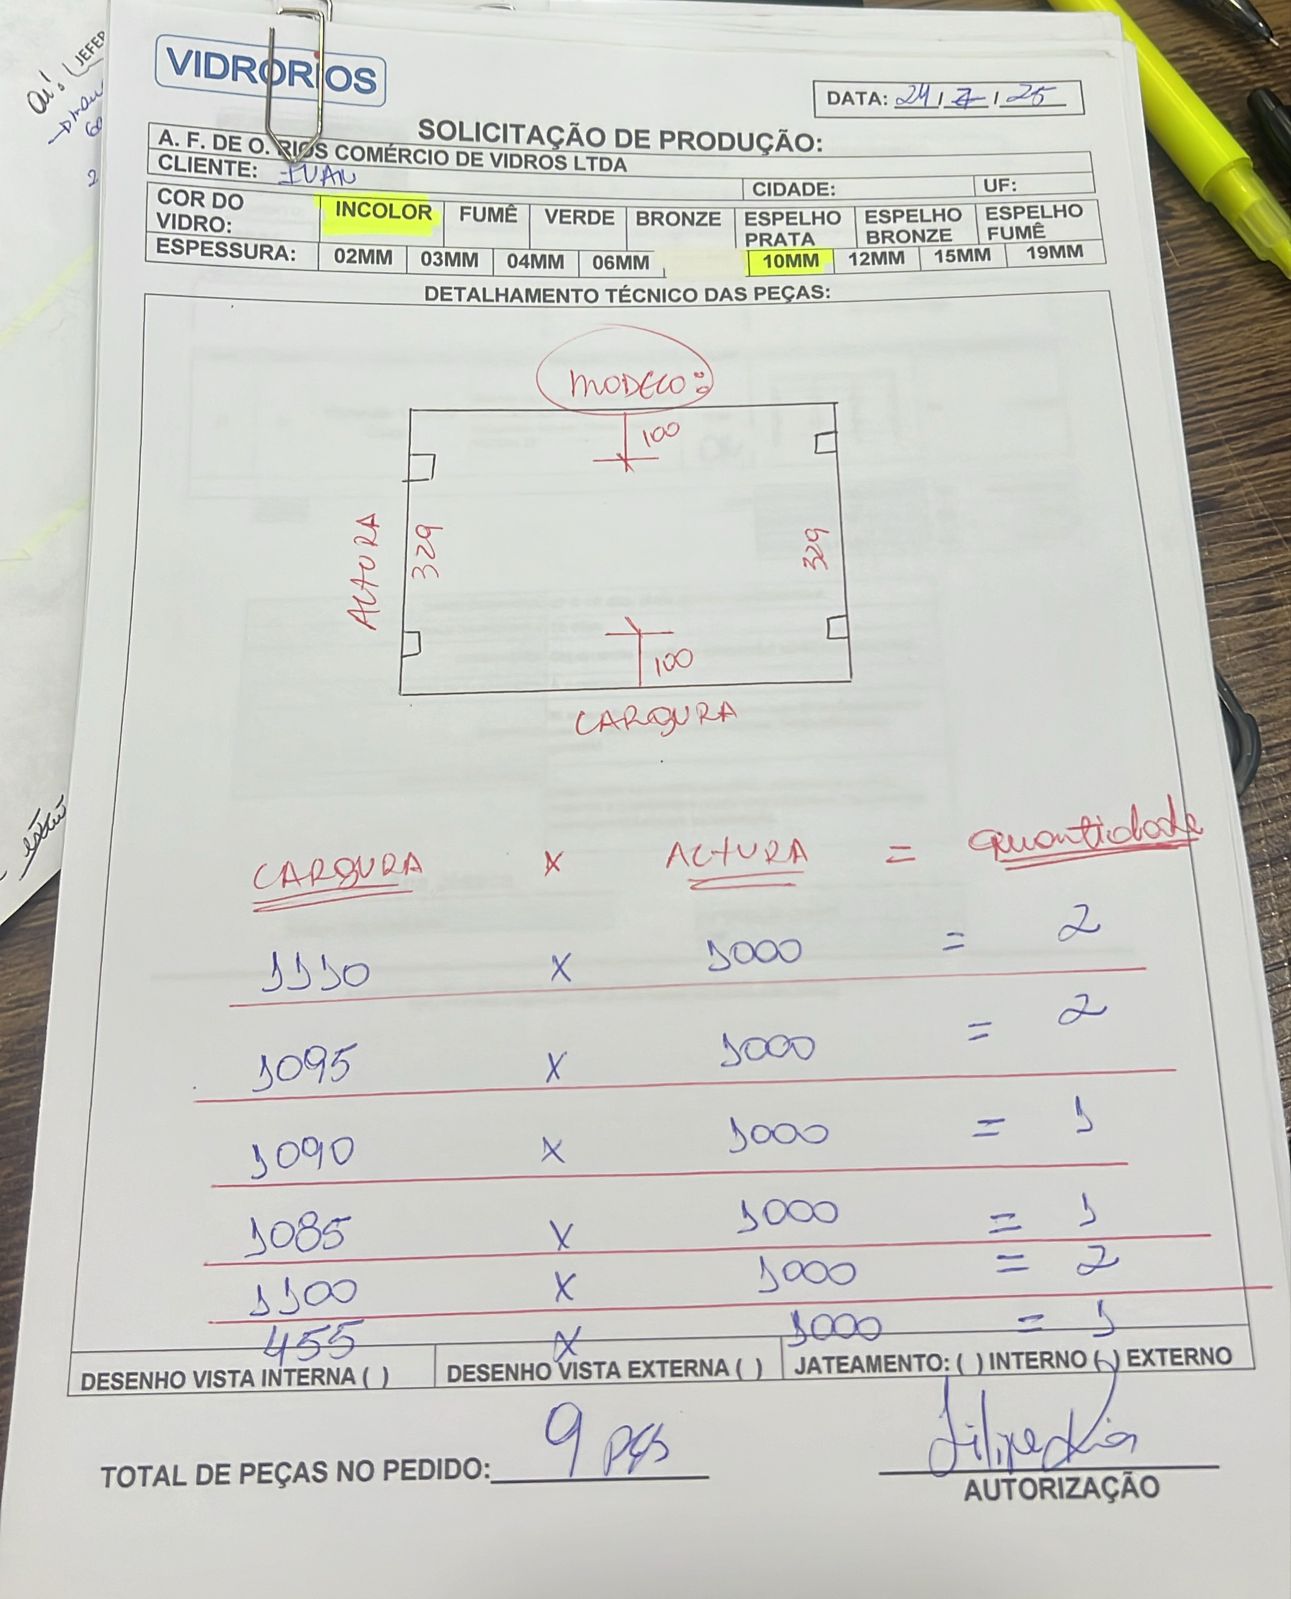 VIDRORIOS
DATA: 24 / 7 / 25
SOLICITAÇÃO DE PRODUÇÃO:
A. F. DE O. RIOS COMÉRCIO DE VIDROS LTDA
CLIENTE: IVAN CIDADE: UF:
COR DO VIDRO: INCOLOR FUMÊ VERDE BRONZE ESPELHO PRATA ESPELHO BRONZE ESPELHO FUMÊ
ESPESSURA: 02MM 03MM 04MM 06MM 10MM 12MM 15MM 19MM
DETALHAMENTO TÉCNICO DAS PEÇAS:
MODELO:
100
ALTURA
329
329
100
LARGURA
LARGURA X ALTURA = Quantidade
1110 X 1000 = 2
1095 X 1000 = 2
1090 X 1000 = 1
1085 X 1000 = 1
1100 X 1000 = 2
455 X 1000 = 1
DESENHO VISTA INTERNA ( ) DESENHO VISTA EXTERNA ( ) JATEAMENTO: ( ) INTERNO ( ) EXTERNO
TOTAL DE PEÇAS NO PEDIDO: 9 PÇS
AUTORIZAÇÃO